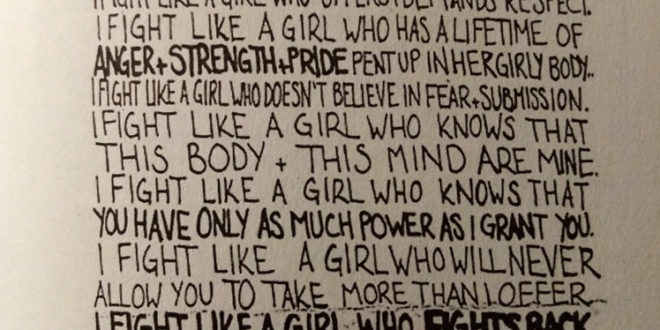 I FIGHT LIKE A GIRL WHO OFFERS + DEMANDS RESPECT.
I FIGHT LIKE A GIRL WHO HAS A LIFETIME OF
ANGER + STRENGTH + PRIDE PENT UP IN HER GIRLY BODY..
I FIGHT LIKE A GIRL WHO DOESN'T BELIEVE IN FEAR + SUBMISSION.
I FIGHT LIKE A GIRL WHO KNOWS THAT
THIS BODY + THIS MIND ARE MINE.
I FIGHT LIKE A GIRL WHO KNOWS THAT
YOU HAVE ONLY AS MUCH POWER AS I GRANT YOU.
I FIGHT LIKE A GIRL WHO WILL NEVER
ALLOW YOU TO TAKE MORE THAN I OFFER
I FIGHT LIKE A GIRL WHO FIGHTS BACK